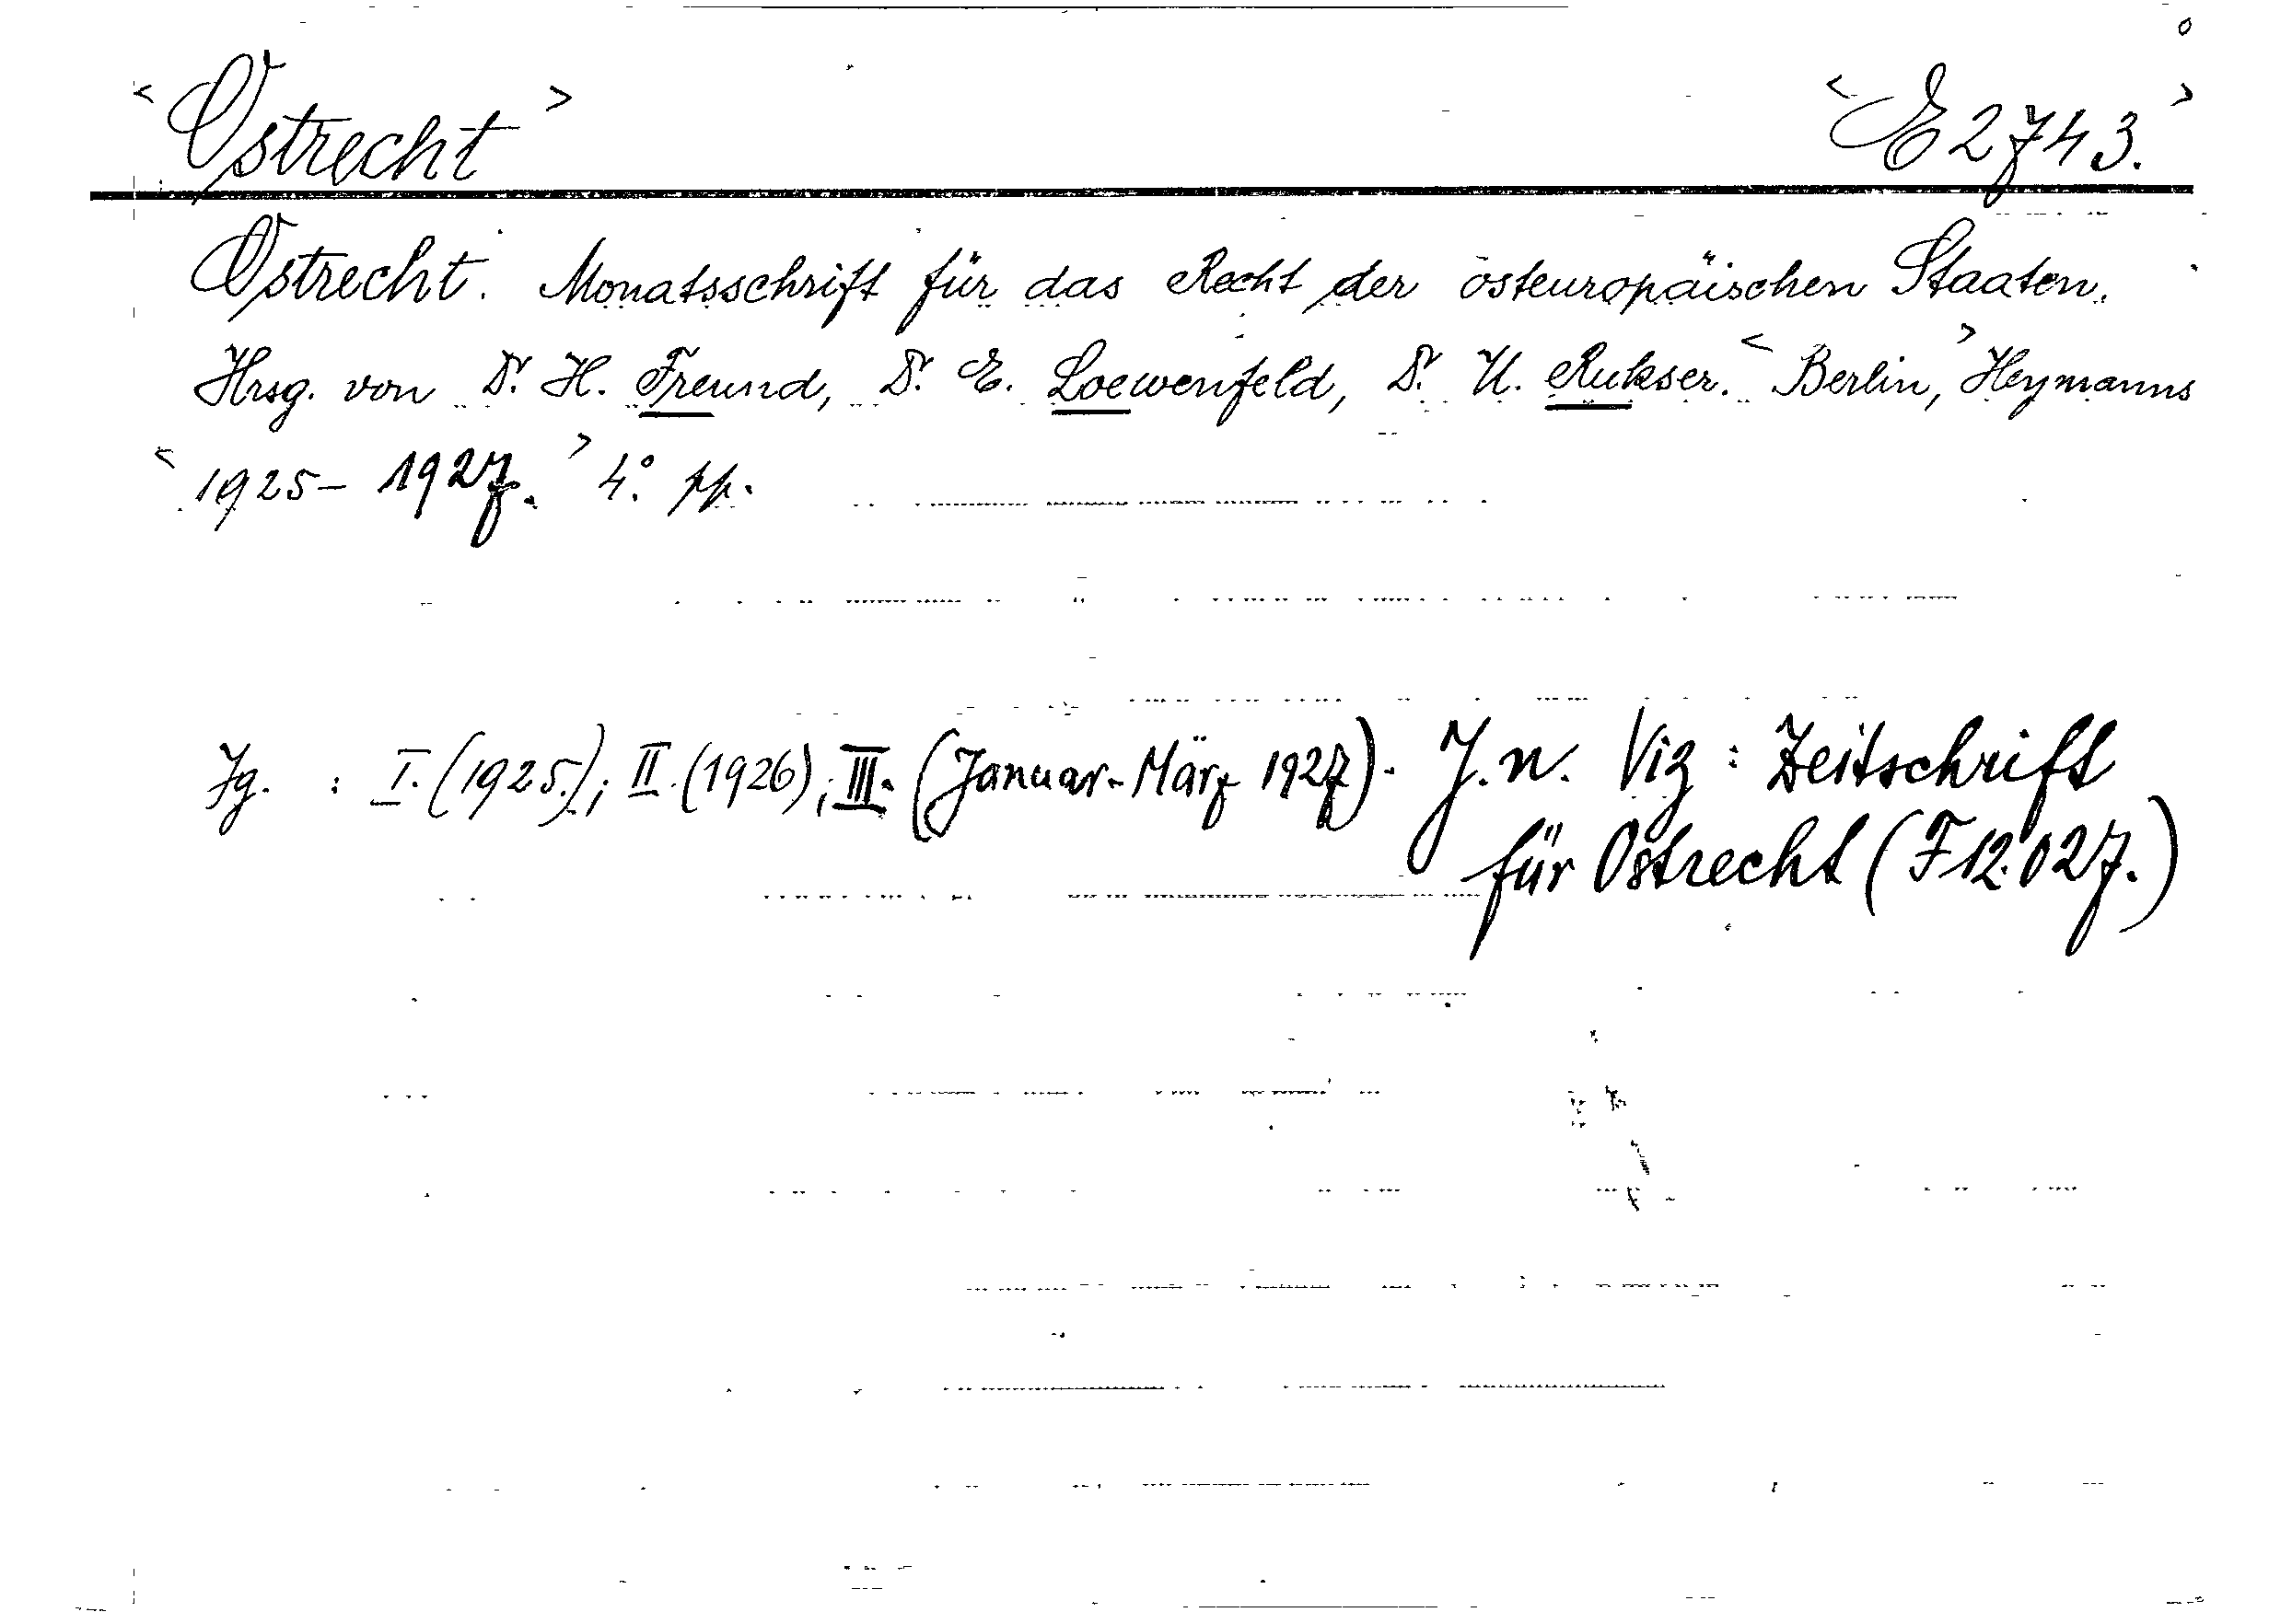 <Ostrecht> <E2743.>
Ostrecht. Monatsschrift für das Recht der osteuropäischen Staaten.
Hrsg. von Dr. H. Freund, Dr. E. Loewenfeld, Dr. U. Rukser. <Berlin,> Heymanns
<1925- 1927.> 4° pp.
Jg. : I. (1925.); II. (1926); III. (Januar-März 1927). J.n. Viz : Zeitschrift
für Ostrecht (F 12.027.)